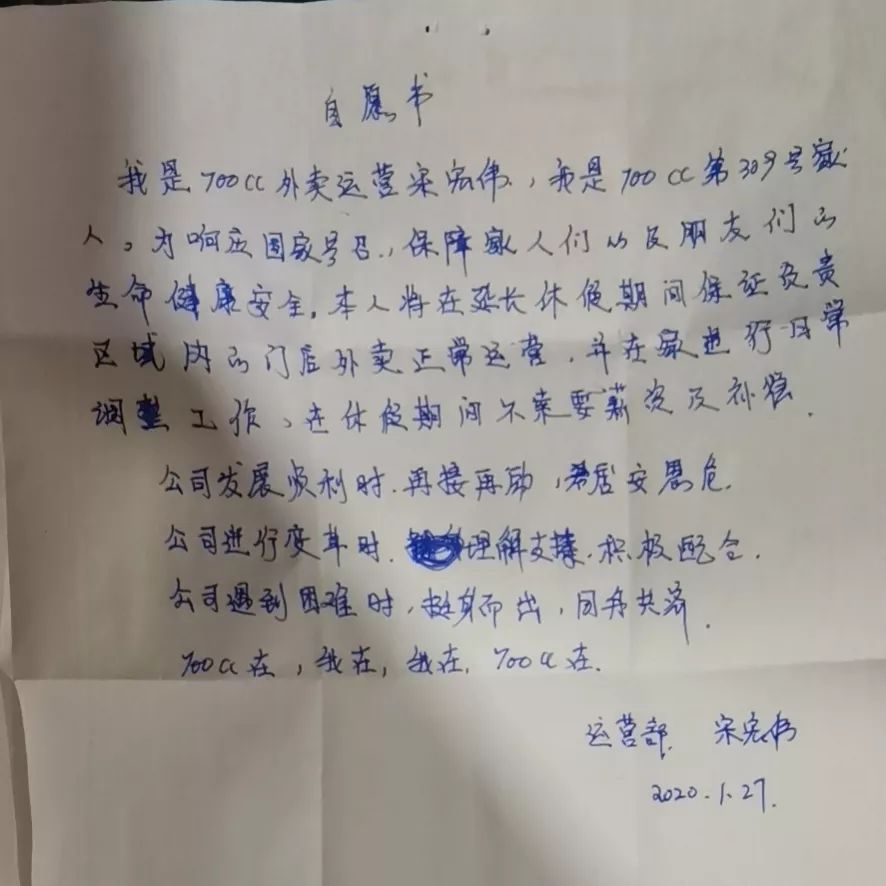 自愿书
我是700CC外卖运营宋宏伟,我是700CC第309号家
人。为响应国家号召,保障家人们以及朋友们的
生命健康安全,本人将在延长休假期间保证负责
区域内的门店外卖正常运营,并在家进行日常
调整工作,在休假期间不索要薪资及补偿.
公司发展顺利时.再接再励,居安思危.
公司进行变革时.理解支持.积极配合.
公司遇到困难时,挺身而出,同舟共济.
700CC在,我在,我在,700CC在.
运营部 宋宏伟
2020.1.27.